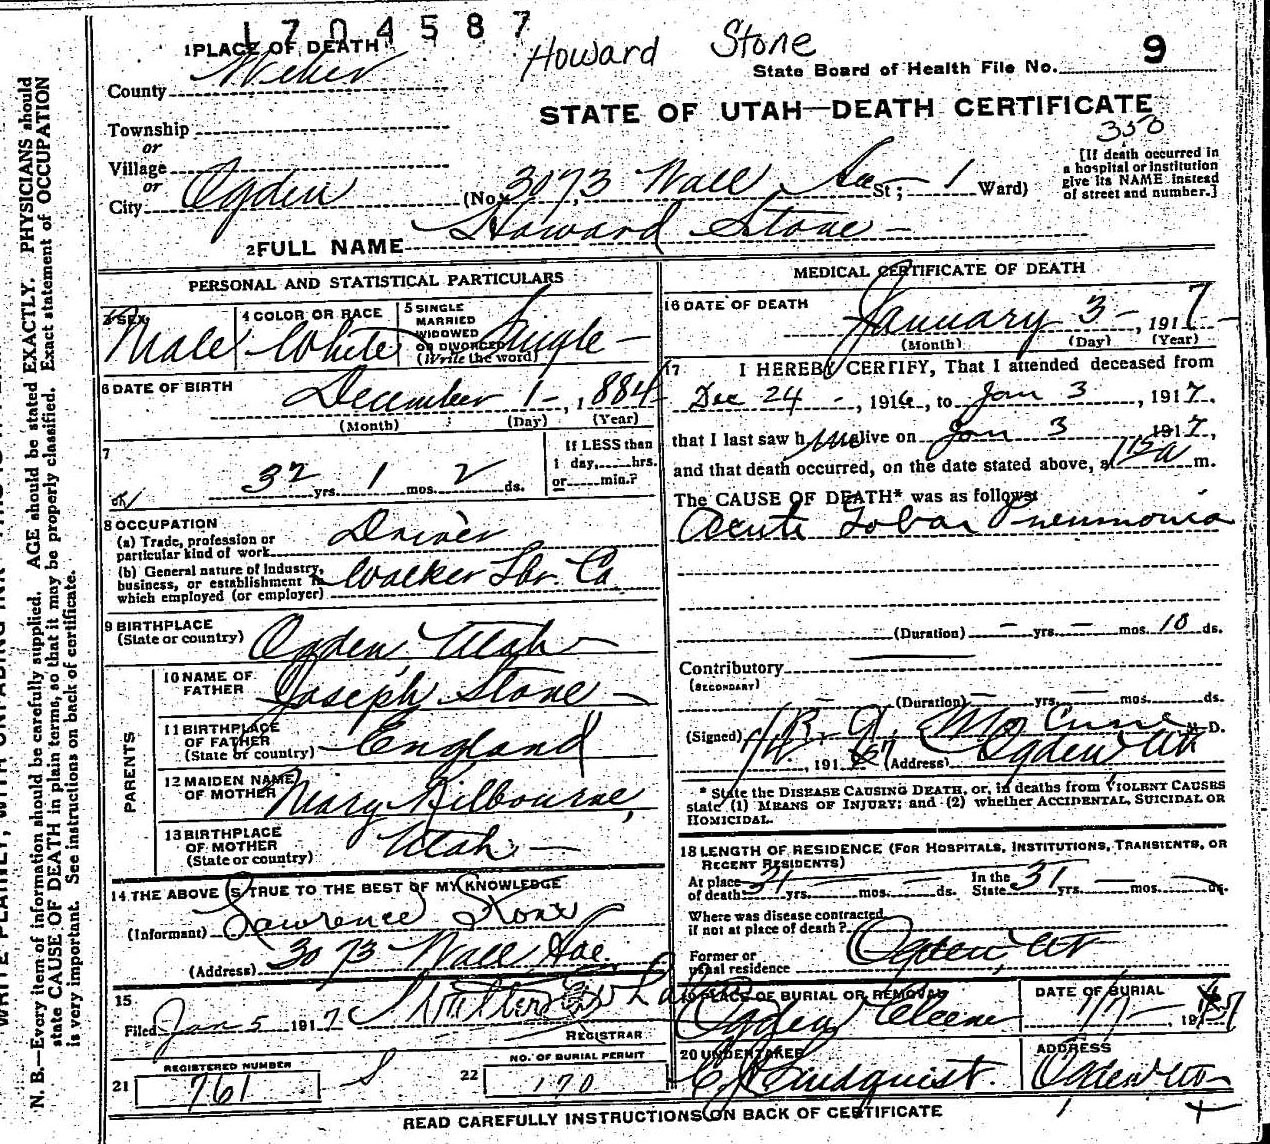 1704587
Howard Stone
9
1 PLACE OF DEATH
State Board of Health File No.
County Weber
STATE OF UTAH—DEATH CERTIFICATE
350
Township
or
Village
or
City Ogden (No. 3073 Wall Ave St; 1 Ward)
[If death occurred in
a hospital or institution
give its NAME instead
of street and number.]
2 FULL NAME Howard Stone
PERSONAL AND STATISTICAL PARTICULARS
3 SEX
Male
4 COLOR OR RACE
White
5 SINGLE
MARRIED
WIDOWED
OR DIVORCED
(Write the word)
Single
6 DATE OF BIRTH
December 1, 1884
(Month) (Day) (Year)
7
32 yrs. 1 mos. 2 ds.
If LESS than
1 day,.....hrs.
or.....min.?
8 OCCUPATION
(a) Trade, profession or
particular kind of work
Driver
(b) General nature of Industry,
business, or establishment in
which employed (or employer)
Walker Lbr. Co.
9 BIRTHPLACE
(State or country)
Ogden, Utah
PARENTS
10 NAME OF
FATHER
Joseph Stone
11 BIRTHPLACE
OF FATHER
(State or country)
England
12 MAIDEN NAME
OF MOTHER
Mary Kilbourne,
13 BIRTHPLACE
OF MOTHER
(State or country)
Utah
14 THE ABOVE IS TRUE TO THE BEST OF MY KNOWLEDGE
(Informant) Lawrence Stone
(Address) 3073 Wall Ave.
15
Filed Jan 5 1917
REGISTRAR
REGISTERED NUMBER
21 761
NO. OF BURIAL PERMIT
22 170
MEDICAL CERTIFICATE OF DEATH
16 DATE OF DEATH
January 3, 1917
(Month) (Day) (Year)
17 I HEREBY CERTIFY, That I attended deceased from
Dec 24, 1916, to Jan 3, 1917.
that I last saw him alive on Jan 3 1917,
and that death occurred, on the date stated above, at m.
The CAUSE OF DEATH* was as follows:
Acute Lobar Pneumonia
(Duration) — yrs. — mos. 10 ds.
Contributory
(SECONDARY)
(Duration) — yrs. mos. ds.
(Signed) McCune M. D.
1/4, 1917 (Address) Ogden Ut
* State the DISEASE CAUSING DEATH, or, in deaths from VIOLENT CAUSES
state (1) MEANS OF INJURY; and (2) whether ACCIDENTAL, SUICIDAL OR
HOMICIDAL.
18 LENGTH OF RESIDENCE (FOR HOSPITALS, INSTITUTIONS, TRANSIENTS, OR
RECENT RESIDENTS)
At place
of death 31 yrs. — mos. — ds. In the
State 31 yrs. — mos. ds.
Where was disease contracted
if not at place of death?
Former or
usual residence
Ogden, Ut
19 PLACE OF BURIAL OR REMOVAL
Ogden
DATE OF BURIAL
1/7 1917
20 UNDERTAKER
C J Lindquist.
ADDRESS
Ogden Ut
READ CAREFULLY INSTRUCTIONS ON BACK OF CERTIFICATE
N. B.—Every item of information should be carefully supplied. AGE should be stated EXACTLY. PHYSICIANS should
state CAUSE OF DEATH in plain terms, so that it may be properly classified. Exact statement of OCCUPATION
is very important. See instructions on back of certificate.